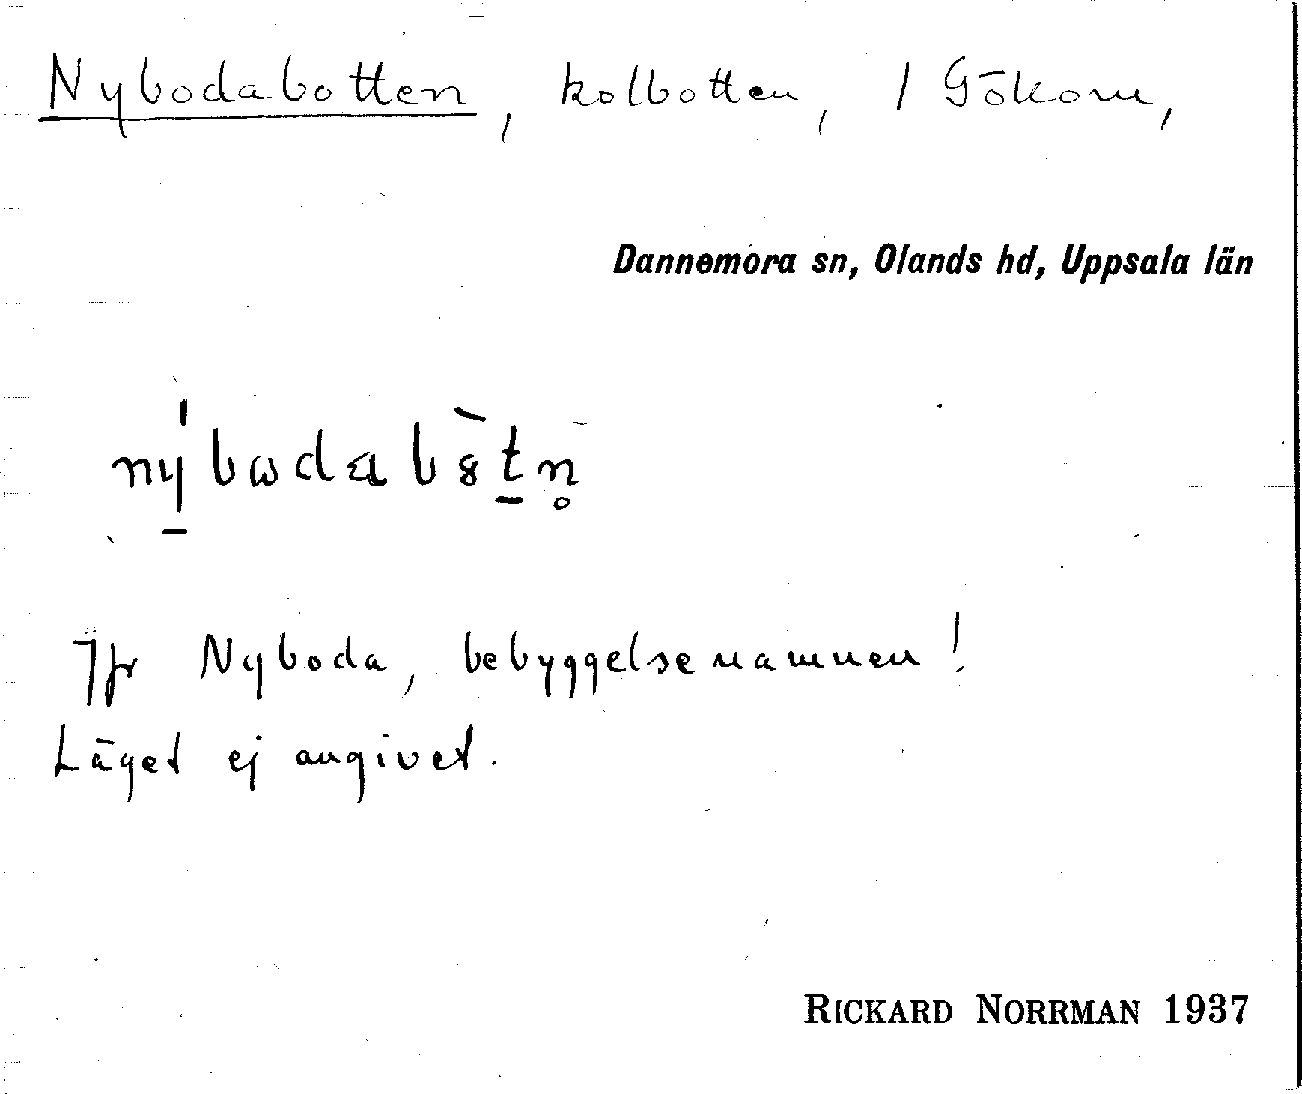 Nybodabotten, kolbotten, / Gökom,
Dannemora sn, Olands hd, Uppsala län
Jfr Nyboda, bebyggelsenamnen!
Läget ej angivet.
RICKARD NORRMAN 1937